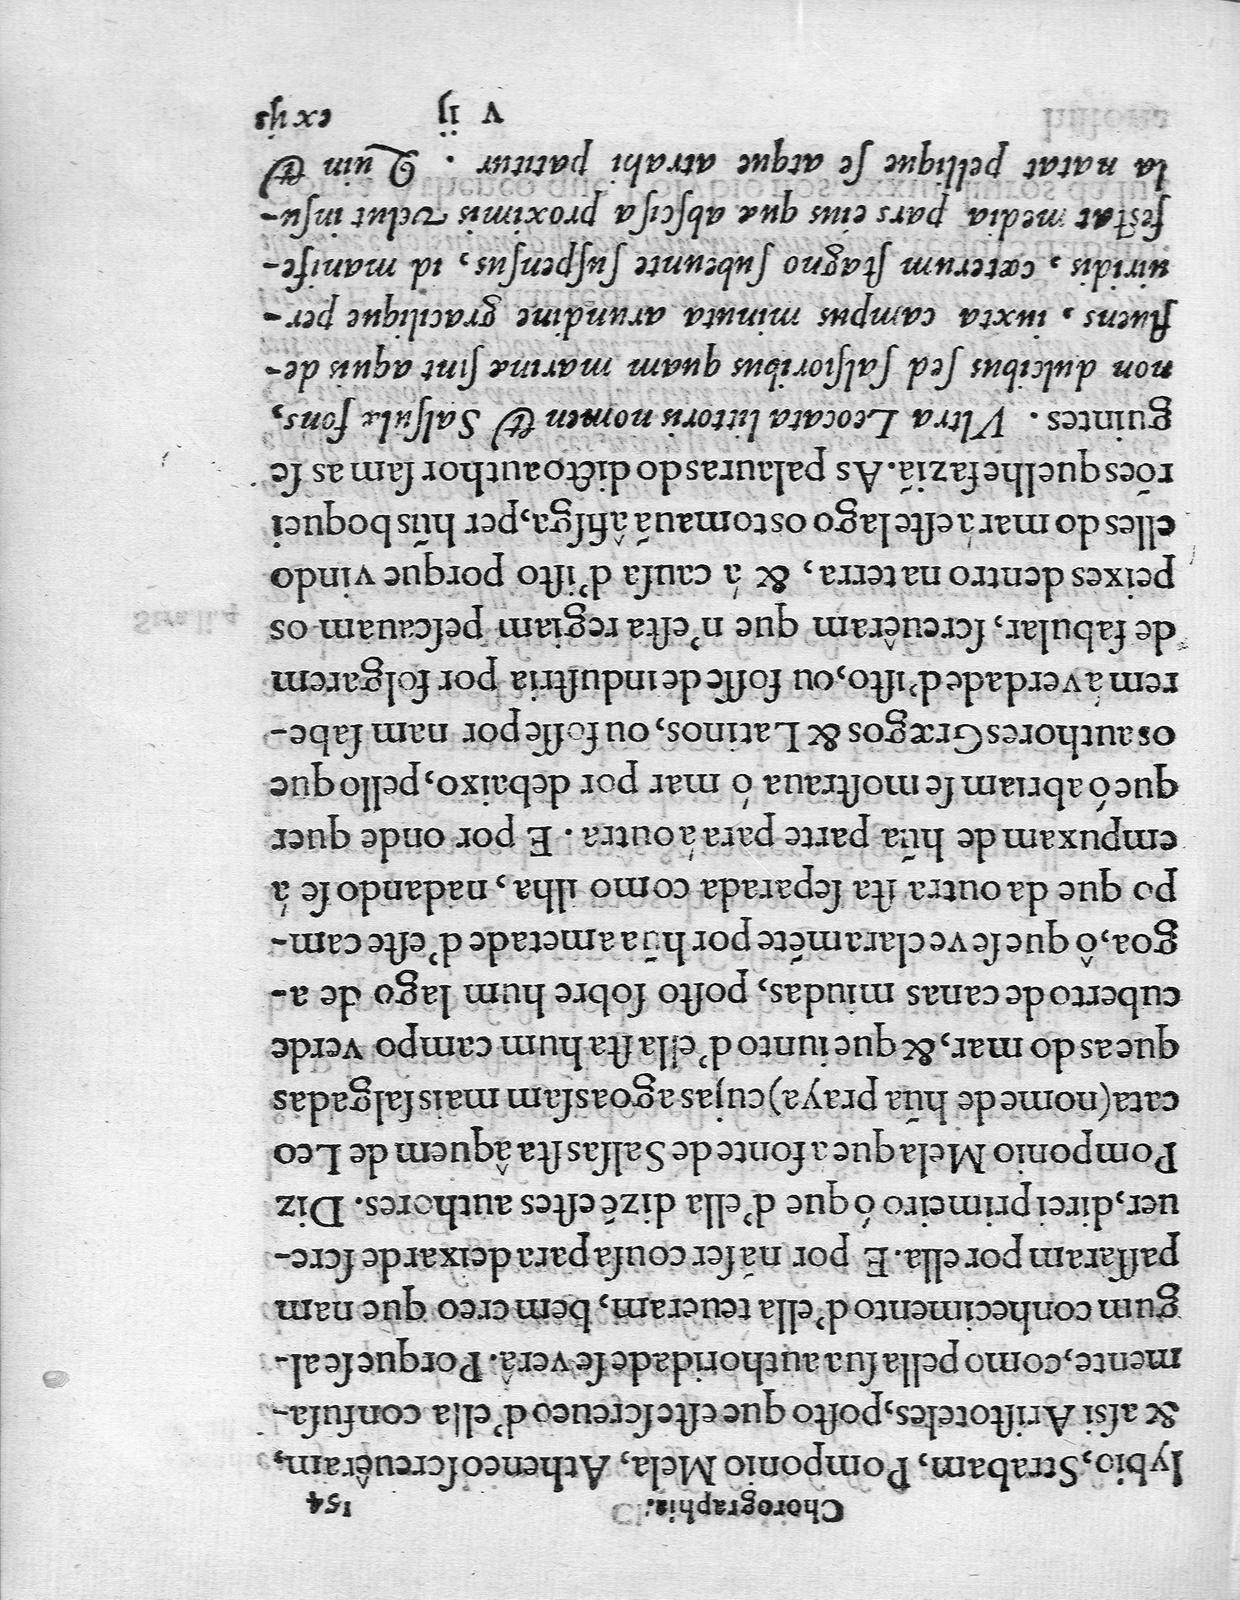 Chorographia. 154
lybio, Strabam, Pomponio Mela, Atheneo ſcreuêram,
& aſsi Ariſtoteles, poſto que eſte ſcreueo d'ella confuſa-
mente, como pella ſua authoridade ſe verâ. Porque ſe al-
gum conhecimento d'ella teueram, bem creo que nam
paſſaram por ella. E por nã ſer couſa para deixar de ſcre-
uer, direi primeiro ó que d'ella dizẽ eſtes authores. Diz
Pomponio Mela que a fonte de Salſas ſta âquem de Leo
cata (nome de hũa praya) cujas agoas ſam mais ſalgadas
que as do mar, & que iunto d'ella ſta hum campo verde
cuberto de canas miudas, poſto ſobre hum lago de a-
goa, ô que ſe ve claramẽte por hũa a metade d'eſte cam-
po que da outra ſta ſeparada como ilha, nadando ſe á
empuxam de hũa parte para a outra. E por onde quer
que ó abriam ſe moſtraua ó mar por debaixo, pello que
os authores Grægos & Latinos, ou foſſe por nam ſabe-
rem á verdade d'iſto, ou foſſe de induſtria por folgarem
de fabular, ſcreuêram que n'eſta regiam peſcauam os
peixes dentro na terra, & á cauſa d'iſto porque vindo
elles do mar á eſte lago os tomauã â fiſga, per hũs boquei
rões que lhe faziã. As palauras do dicto author ſam as ſe
guintes. Vltra Leocata littoris nomen & Salſulæ fons,
non dulcibus ſed ſalſioribus quam marinæ ſint aquis de-
fluens, iuxta campus minuta arundine gracilique per-
uiridis, cæterum ſtagno ſubeunte ſuſpenſus, id manife-
ſtat media pars eius quæ abſciſa proximis velut inſu-
la natat pellique ſe atque atrahi patitur. Quin &
v ij ex ijs